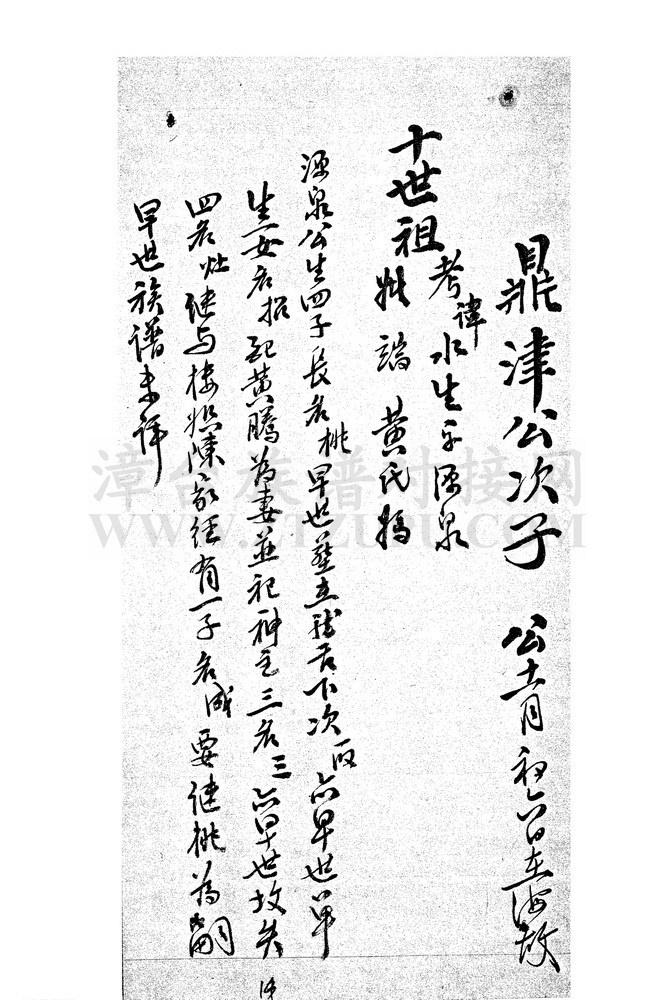 鼎津公次子 公十一月初六日在海故
十世祖
考諱水生字源泉
妣諡黄氏媽
源泉公生四子長名桃早世葬在 下次 亦早世单
生一女名招配黄騰為妻並祀神主三名三亦早世坟失
四名灶继与楼 陳家经有一子名成要继桃為嗣
早世族譜未詳
漳台族谱对接网
WWW.ZTZUPU.COM